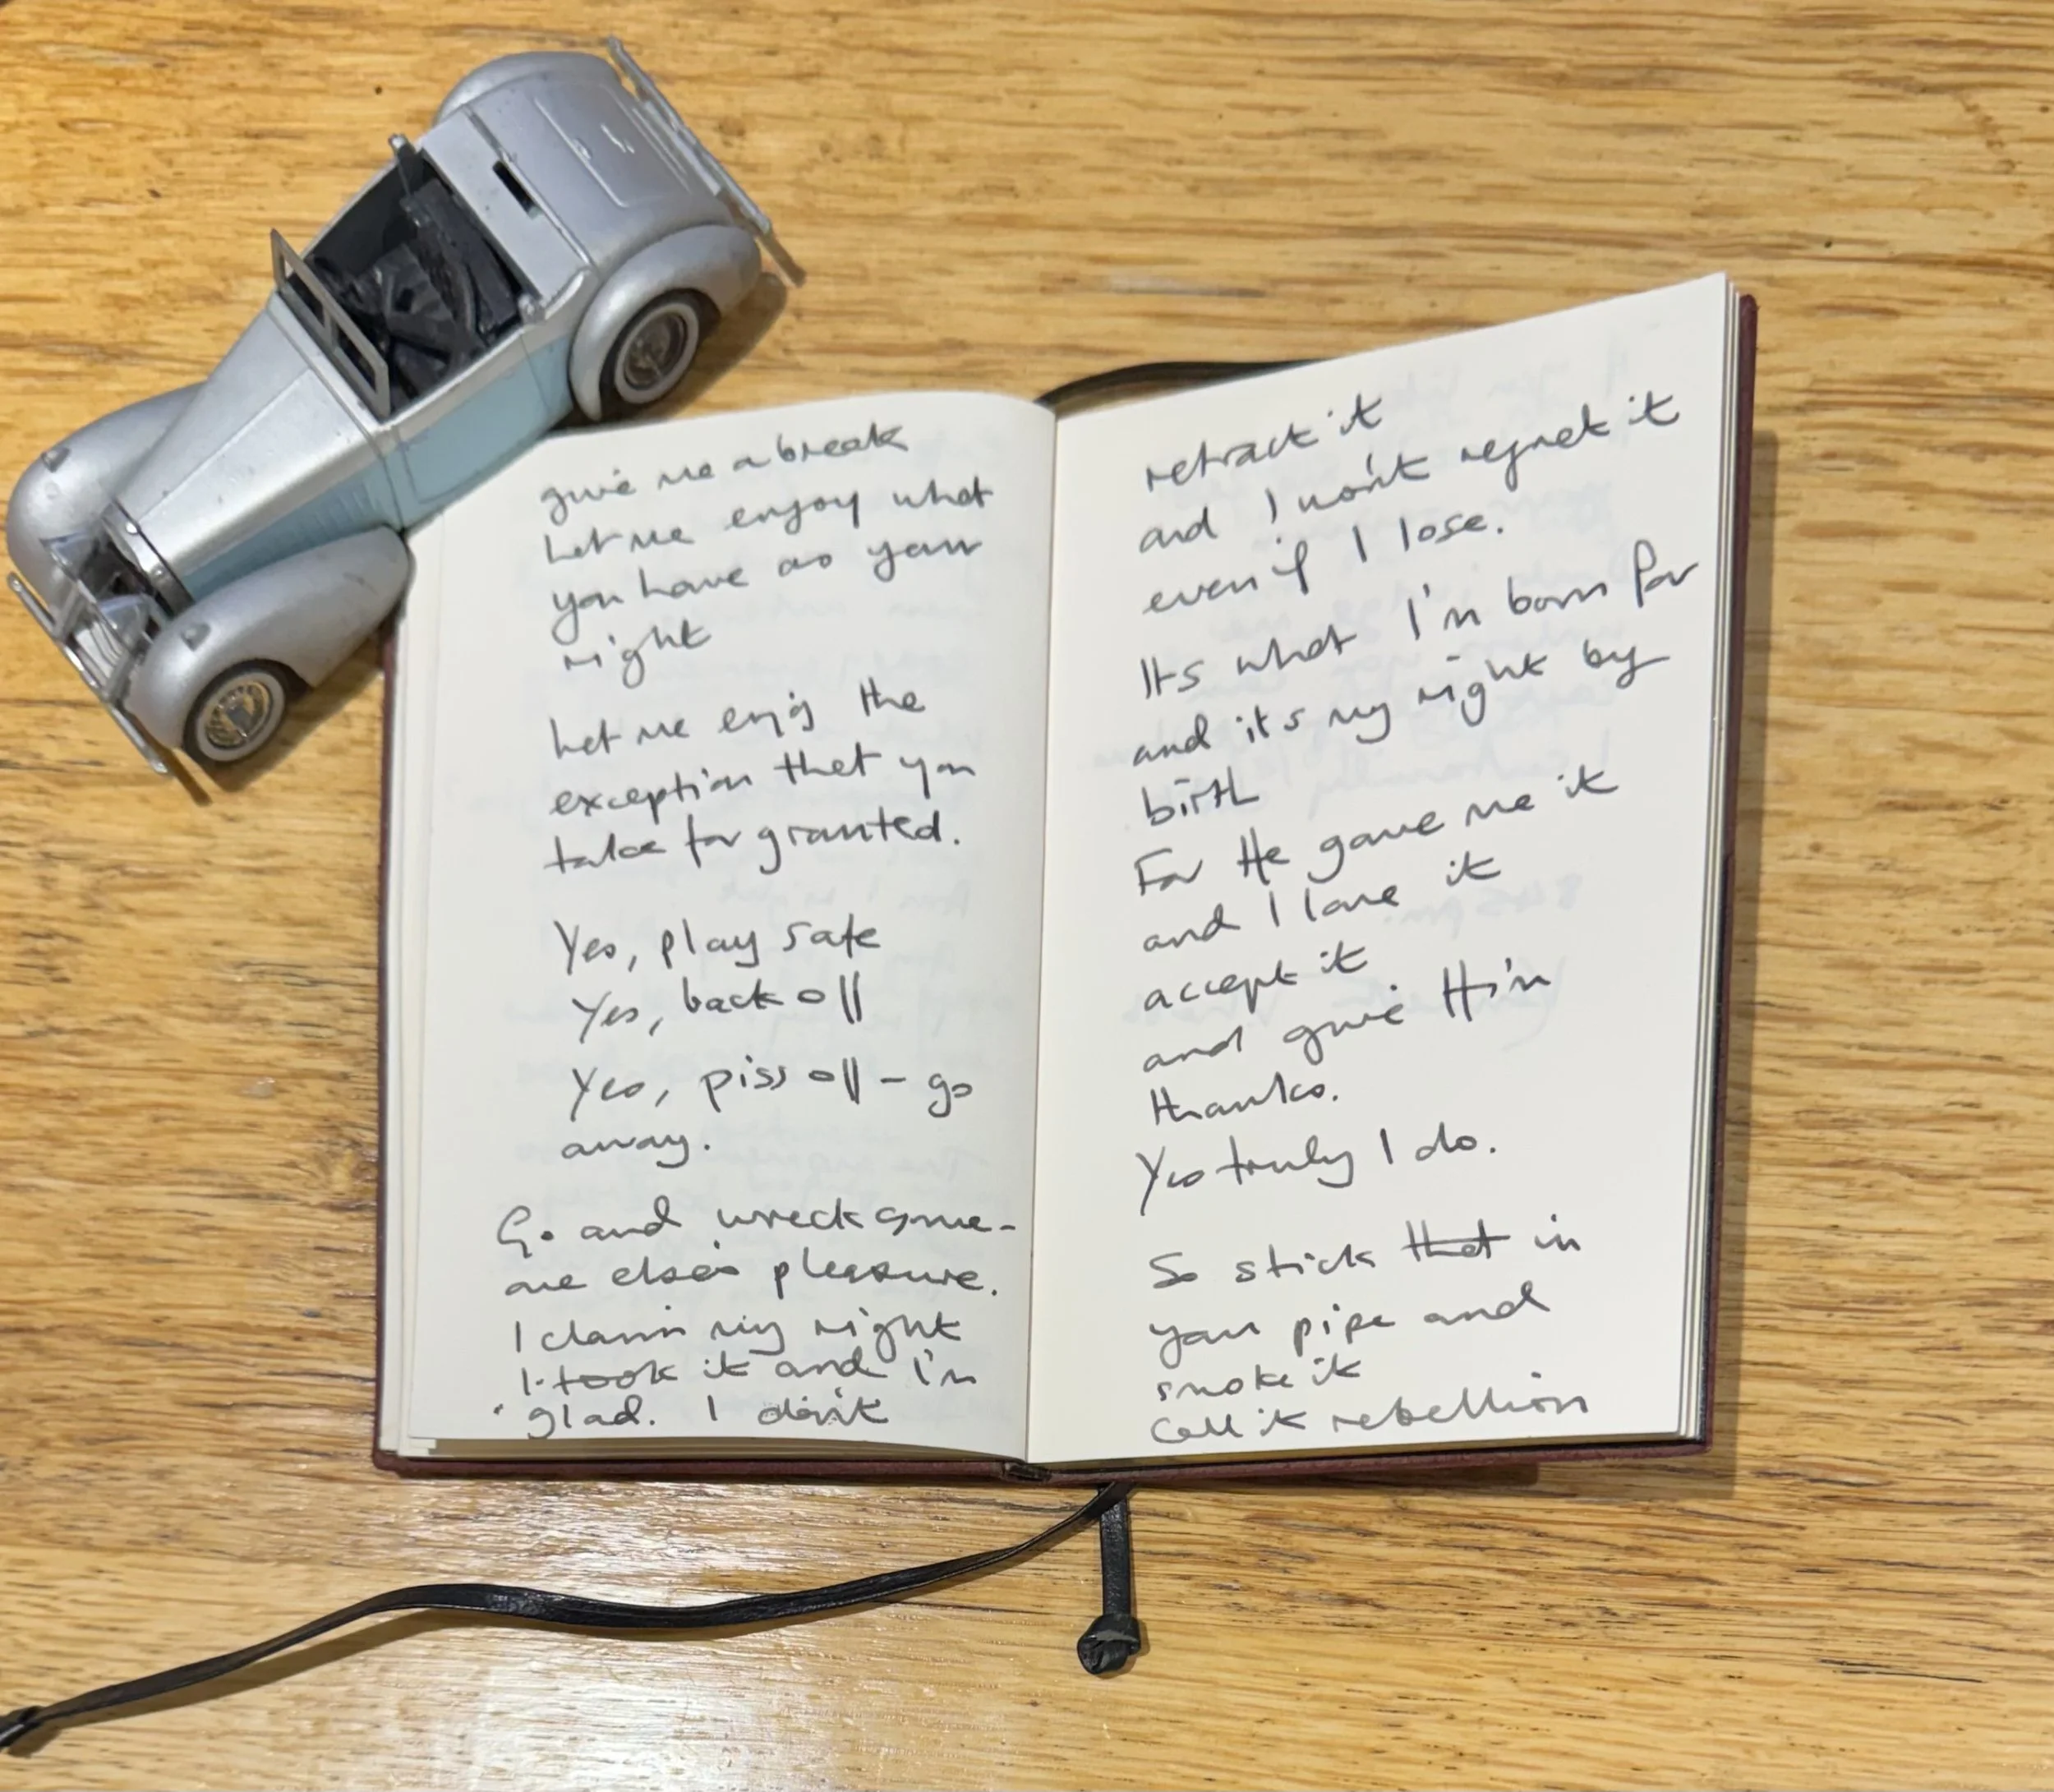 give me a break
Let me enjoy what
you have as your
right
Let me enjoy the
exception that you
take for granted.
Yes, play safe
Yes, back off
Yes, piss off – go
away.
Go and wreck some-
one else's pleasure.
I claim my right
I took it and I'm
glad. I don't
retract it
and I won't regret it
even if I lose.
Its what I'm born for
and it's my right by
birth
For He gave me it
and I love it
accept it
and give Him
thanks.
Yes truly I do.
So stick that in
your pipe and
smoke it
Call it rebellion